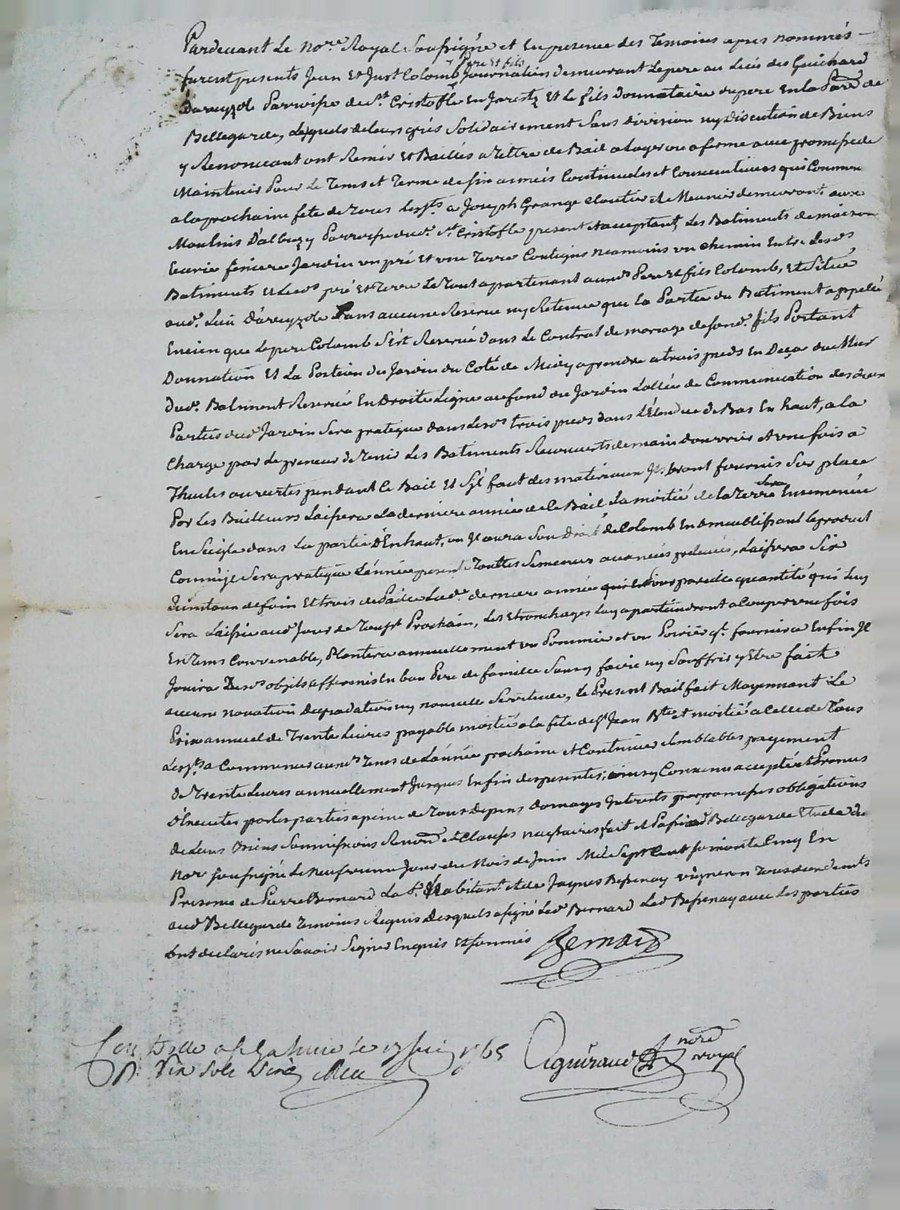 Pardevant Le no.re Royal Soussigné et En presence des Temoins apres nommés
furent presents Jean Et Just Colomb pere et fils Journaliers demeurant Le pere au Lieu des Guichard
Parroisse de S.t Cristofle En Jarest Et Le fils Donnataire du pere En La Par.se de
Bellegarde, Lesquels de Leurs grés Solidairement Sans division ny discution de Biens
y Renoncant ont Remis Et Baillés a Tittre de Bail a Loyer ou a ferme avec promesse de
Maintenir Pour Le Tems et Terme de six années Continuelles et Consecutives qui Commen
a La prochaine fete de Tous Les S.ts a Joseph Grange Cloutier de Meunier demeurant aux
Moulins D'albuzy Parroisse dud.t S.t Cristofle present et acceptant Les Batiments de maison
Ecurie feniere Jardin un pré et une Terre Contigus neamoins un chemin Entre Les d.s
Batiments et Les d.s pré et Terre Le Tout apartenant aux d.s Pere et fils Colomb, et Situé
aud.t Lieu Sans aucune Reserve ny Retenue que La Partie du Batiment appellé
Encien que Le pere Colomb S'est Reservé dans Le Contrat de mariage de son d.t fils Portant
Donnation Et La Portion du Jardin du Coté de Midy a prendre a trois pieds En Deça du Mur
dud.t Batiment Reservé En Droite Ligne au fond du Jardin L'allée de Communication des deux
Parties dud.t Jardin Sera pratiqué dans Les d.s trois pieds dans L'étendue de Bas En haut, a La
Charge par Le preneur de Tenir Les Batiments Recouverts de main d'ouvrier et une fois a
Thuiles ouvertes pendant Le Bail Et S'il faut des matériaux Ils Seront fournis Sur place
Par Les Bailleurs Laissera La derniere année de Le Bail La moitié de La Terre Sera Ensemencée
En Seigle dans La partie D'Enhaut, ou Il aura Son Droit de Colomb En Le produit
Comme Il Sera pratiqué L'année presente Touttes Semences avancées prelevées, Laissera Six
quintaux de foin Et trois de Paille Lad.te derniere année pareille quantité qui Luy
Sera Laissée aud.t Jour de Touss.t Prochain, Les Etronchages Luy apartiendront a Couper une fois
En Tems Convenable, Plantera annuellement un Pommier et un Poirier q.l fournira Enfin Il
Jouira Des d.s objets affermés En bon Pere de famille Sans y faire ny Souffrir y Etre fait
aucune novation Degradation ny nouvelle Servitude, Le Present Bail fait Moyennant Le
Prix annuel de Trente Livres payable moitié a La fete de S.t Jean B.te et moitié a Celle de Tous
Les S.ts a Commencer aux d.s Tems de L'année prochaine et Continuer Semblables payement
de Trente Livres annuellement Jusques En fin des presentes, ainsy Convenu accepté et Promis
D'Executer par Les parties a peine de Tous Depens Domages Interets par promesses obligations
de Leurs Biens Soumissions Renon.ons et Clauses fait et Passé aud.t Bellegarde Etude du
No.re Soussigné Le Neufvieme Jour du Mois de Juin Mil Sept Cent Soixante Cinq En
Presence de Pierre Bernard Habitant et de Jacques Bessenay vigneron Tous deux
aud.t Bellegarde Temoins Requis Desquels a Signé Led.t Bernard Led.t Bessenay avec Les parties
ont declarés ne Savoir Signer Enquis et Sommés
Bernard
Controllé a Le 17 Juin 1765
R. Six Sols
Aguiraud no.re royal